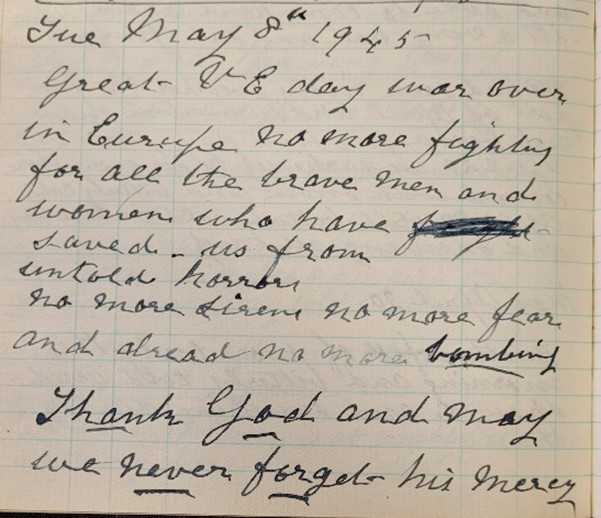 Tue May 8th 1945
Great V E day war over
in Europe no more fighting
for all the brave men and
women who have
saved - us from
untold horrors
no more sirens no more fear
and dread no more bombing
Thank God and may
we never forget his Mercy